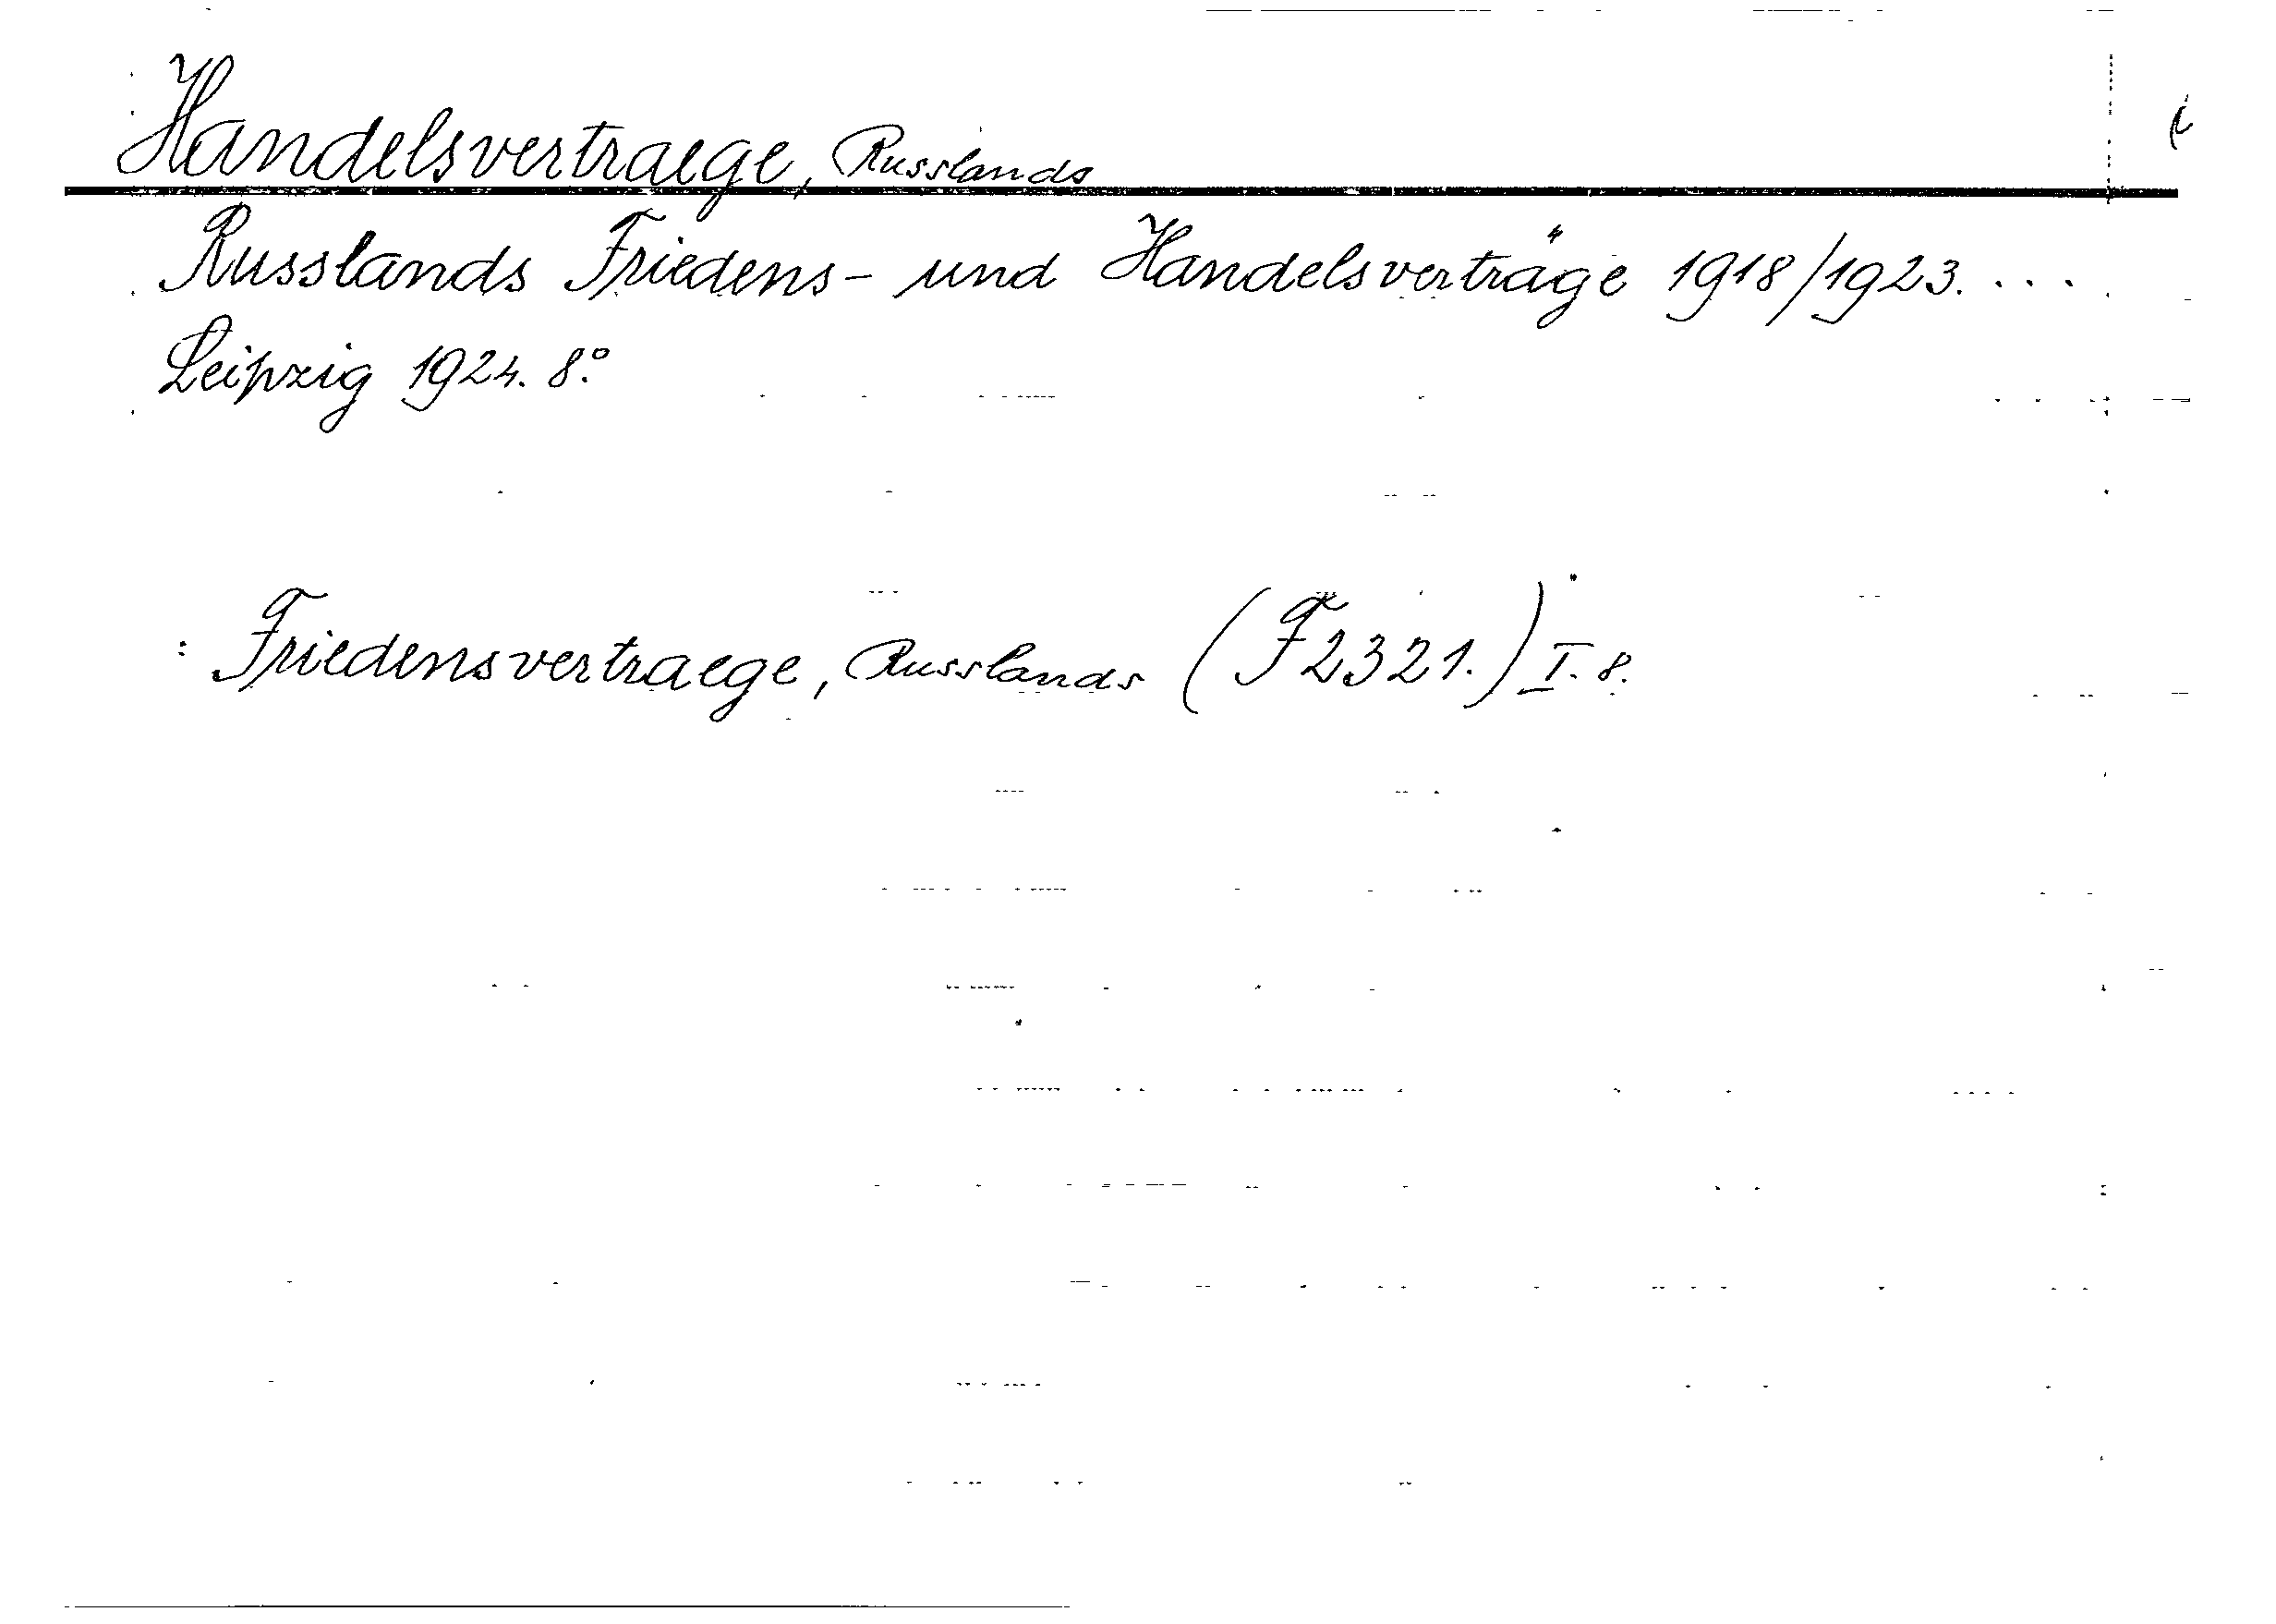 Handelsvertraege, Russlands
Russlands Friedens- und Handelsverträge 1918/1923. ...
Leipzig 1924. 8.°
: Friedensvertraege, Russlands (F2321.) I. 8.